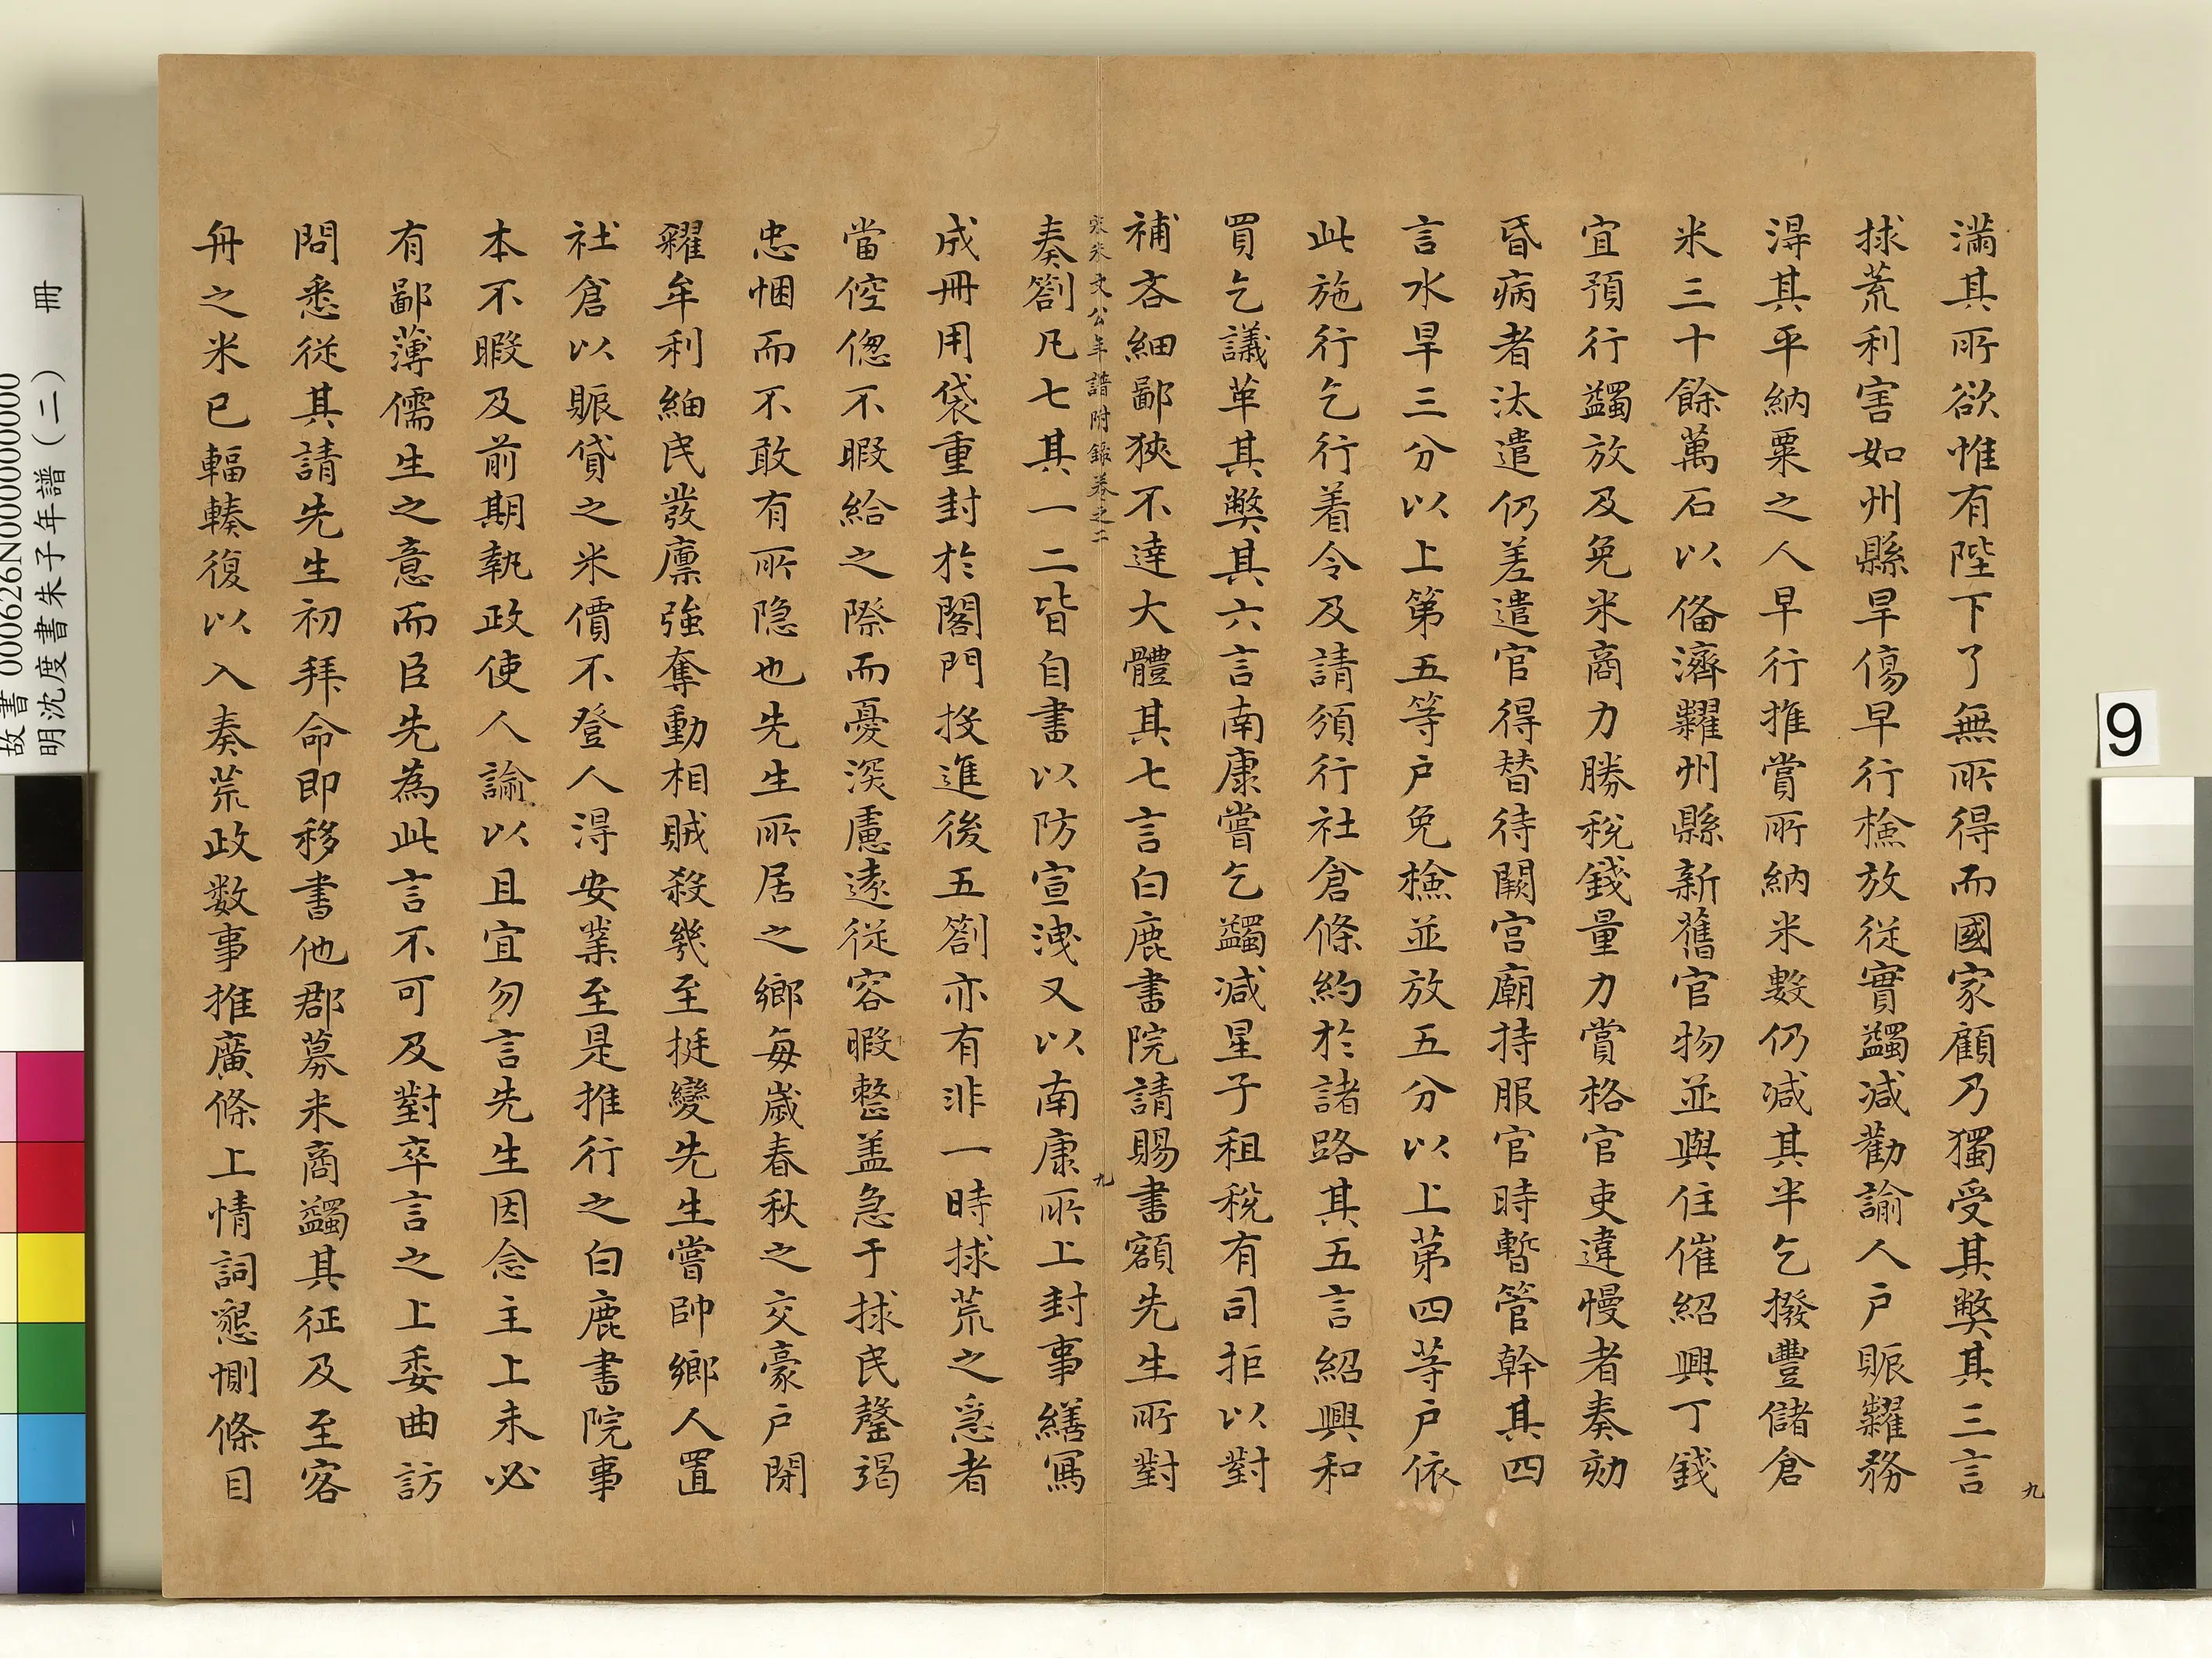 滿其所欲惟有陛下了無所得而國家顧乃獨受其弊其三言
捄荒利害如州縣旱傷早行檢放從實蠲減勸諭人戶賑糶務
得其平納粟之人早行推賞所納米數仍減其半乞撥豐儲倉
米三十餘萬石以俻濟糶州縣新舊官物並與住催紹興丁錢
宜預行蠲放及免米商力勝稅錢量力賞格官吏違慢者奏劾
昏病者汰遣仍差遣官得替待闕宫廟持服官時暫管幹其四
言水旱三分以上第五等戶免檢並放五分以上苐四等戶依
此施行乞行着令及請須行社倉條約於諸路其五言紹興和
買乞議革其弊其六言南康嘗乞蠲減星子租稅有司拒以對
補吝細鄙狹不達大體其七言白鹿書院請賜書額先生所對
宋朱文公年譜附錄卷之二
九
奏劄凡七其一二皆自書以防宣洩又以南康所上封事繕寫
成冊用袋重封於閤門投進後五劄亦有非一時捄荒之急者
當倥傯不暇給之際而憂深慮遠從容暇整盖急于捄民罄竭
忠悃而不敢有所隐也先生所居之鄉每歲春秋之交豪戶閉
糴牟利細民發廪強奪動相賊殺幾至挺變先生嘗帥鄉人置
社倉以賑貸之米價不登人得安業至是推行之白鹿書院事
本不暇及前期執政使人諭以且宜勿言先生因念主上未必
有鄙薄儒生之意而臣先為此言不可及對卒言之上委曲訪
問悉從其請先生初拜命即移書他郡募米商蠲其征及至客
舟之米已輻輳復以入奏荒政数事推廣條上情詞懇惻條目
九
9
故書 000626N000000000
明沈度書朱子年譜（二） 冊